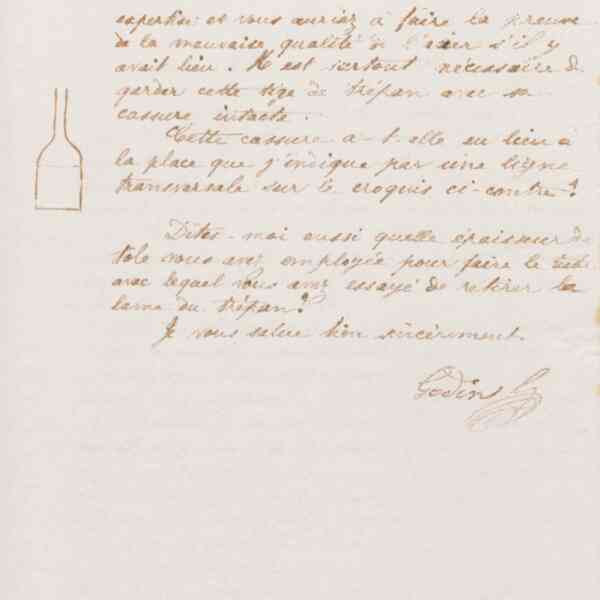 expertise et vous auriez à faire la preuve
de la mauvaise qualité de l'acier s'il y
avait lieu. Il est surtout nécessaire de
garder cette tige de trépan avec sa
cassure intacte.
Cette cassure a-t-elle eu lieu à
la place que j'indique par une ligne
transversale sur le croquis ci-contre?
Dites-moi aussi quelle épaisseur de
tole vous avez employée pour faire le tube
avec lequel vous avez essayé de retirer la
lame du trépan?
Je vous salue bien sincèrement.
Godin